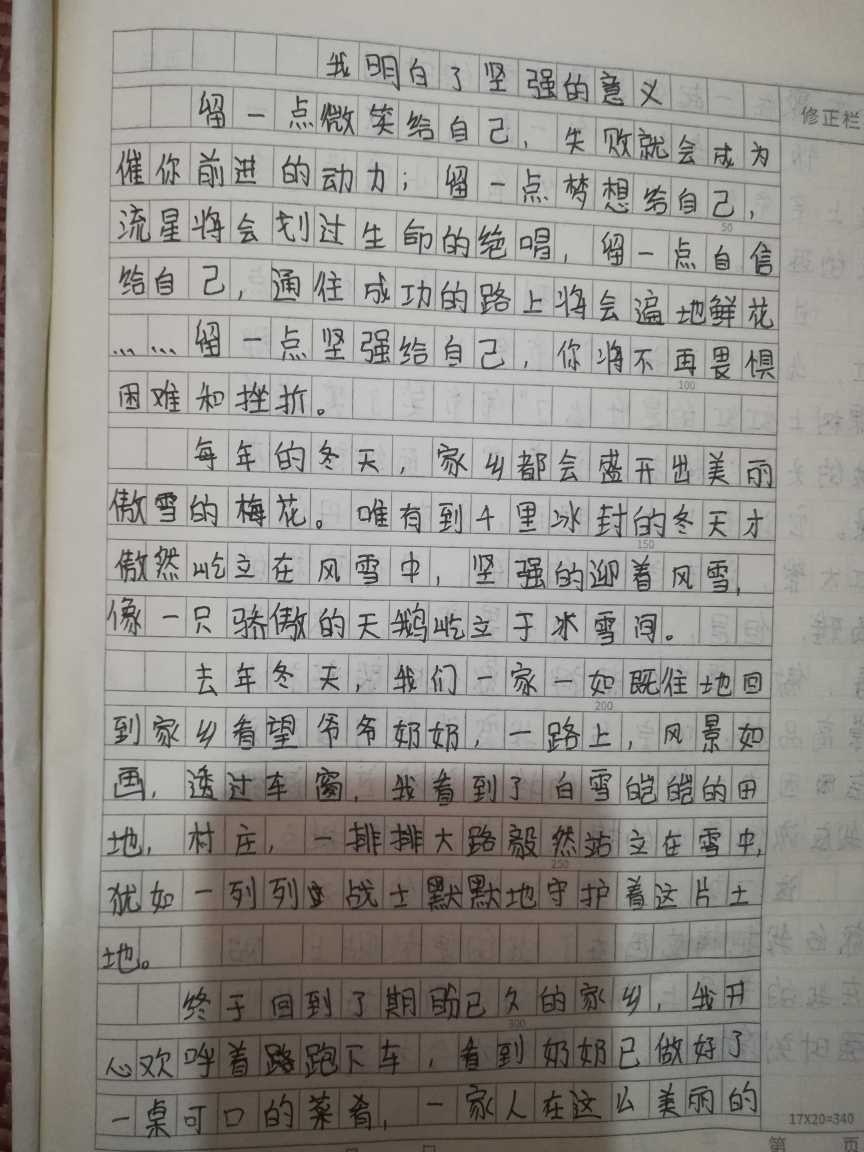 我明白了坚强的意义
修正栏
留一点微笑给自己，失败就会成为
催你前进的动力；留一点梦想给自己，
50
流星将会划过生命的绝唱，留一点自信
给自己，通往成功的路上将会遍地鲜花
……留一点坚强给自己，你将不再畏惧
100
困难和挫折。
每年的冬天，家乡都会盛开出美丽
傲雪的梅花。唯有到千里冰封的冬天才
150
傲然屹立在风雪中，坚强的迎着风雪，
像一只骄傲的天鹅屹立于冰雪间。
去年冬天，我们一家一如既往地回
200
到家乡看望爷爷奶奶，一路上，风景如
画，透过车窗，我看到了白雪皑皑的田
地，村庄，一排排大路毅然站立在雪中，
250
犹如一列列战士默默地守护着这片土
地。
终于回到了期盼已久的家乡，我开
300
心欢呼着跑下车，看到奶奶已做好了
一桌可口的菜肴，一家人在这么美丽的
17X20=340
第 页